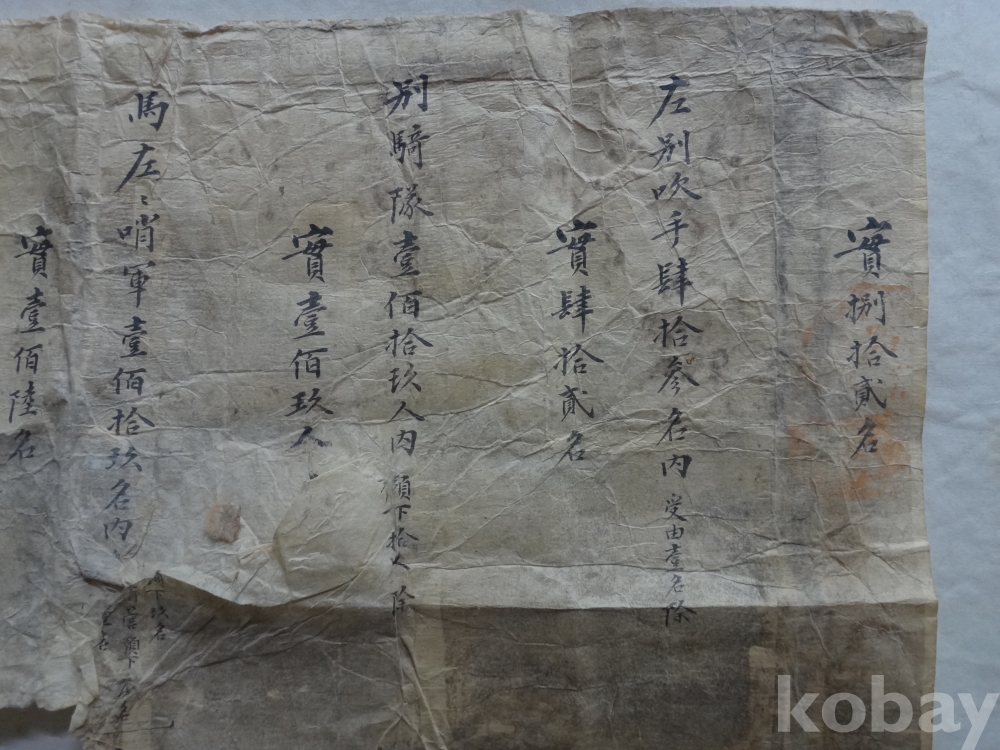 實捌拾貳名
左別吹手肆拾參名內 受由壹名除
實肆拾貳名
別騎隊壹佰拾玖人內 頉下拾人 除
實壹佰玖人
馬左〻哨軍壹佰拾玖名內
實壹佰陸名
kobay